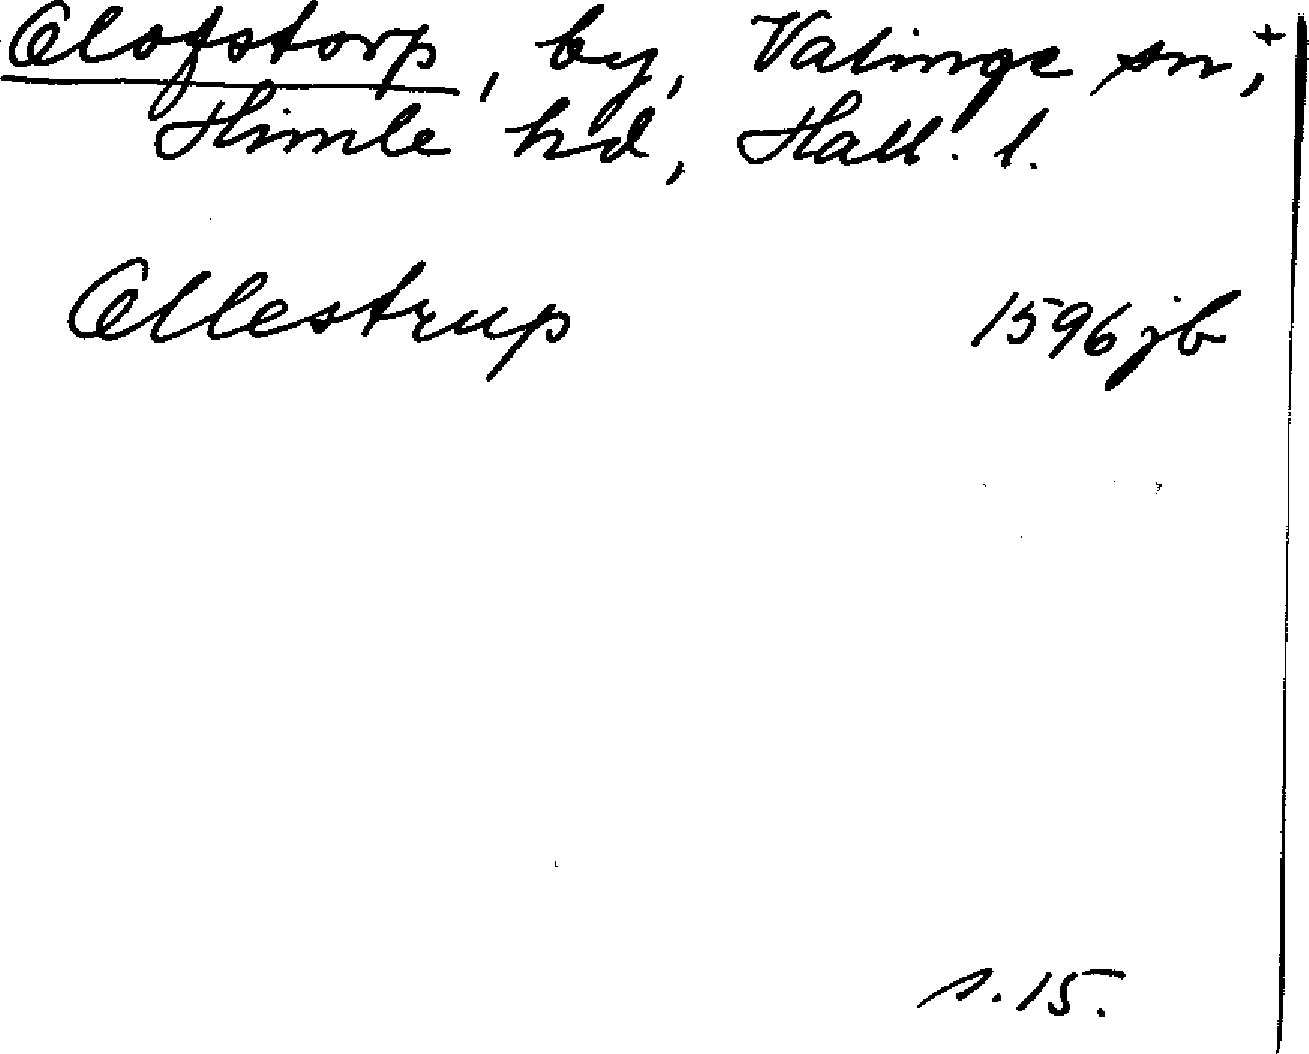 Olofstorp, by, Valinge sn,+
Himle hd, Hall. l.
Ollestrup 1596 jb
s. 15.